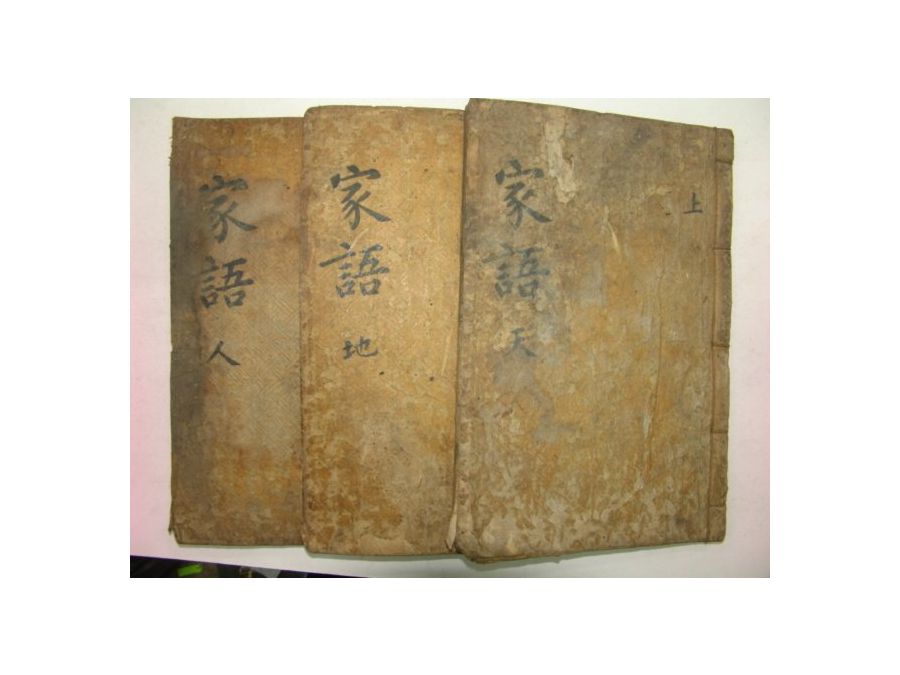 上
家語 天
家語 地
家語 人